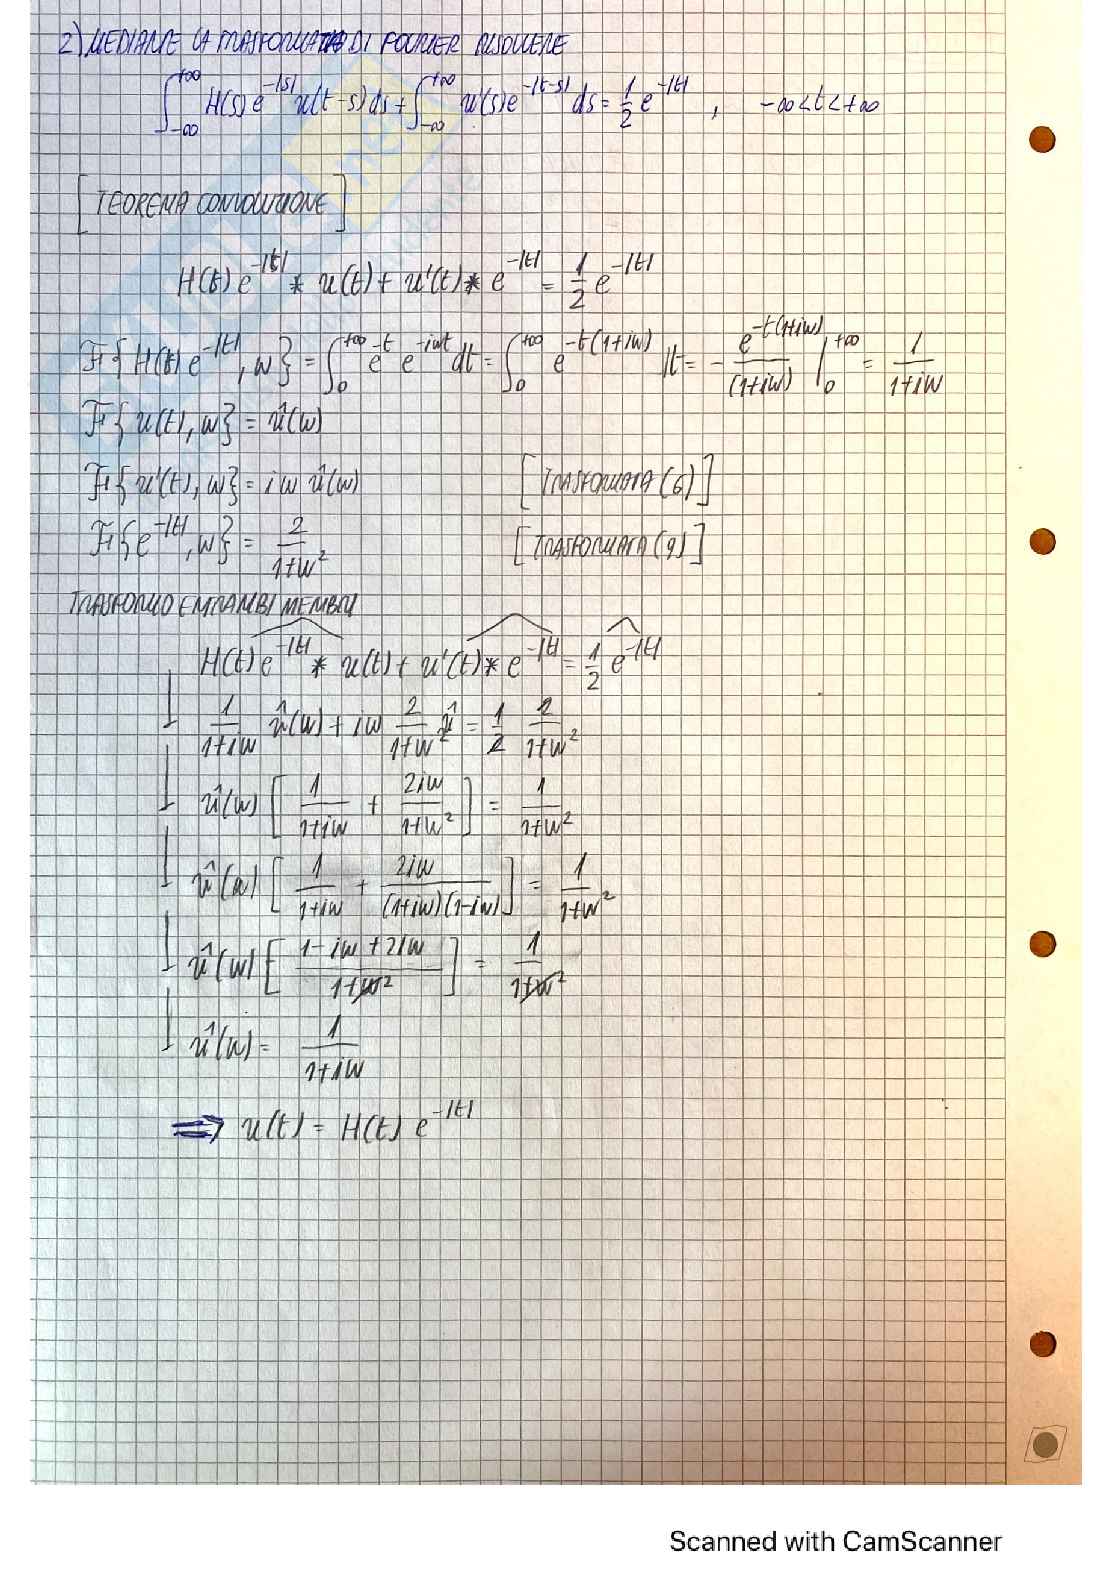 2) MEDIANTE LA TRASFORMATA DI FOURIER RISOLVERE
∫_{-∞}^{+∞} H(s) e^{-|s|} u(t-s) ds + ∫_{-∞}^{+∞} u'(s) e^{-|t-s|} ds = 1/2 e^{-|t|} , -∞ < t < +∞
[TEOREMA CONVOLUZIONE]
H(t) e^{-|t|} * u(t) + u'(t) * e^{-|t|} = 1/2 e^{-|t|}
F{H(t) e^{-|t|}, w} = ∫_0^{+∞} e^{-t} e^{-iwt} dt = ∫_0^{+∞} e^{-t(1+iw)} dt = - e^{-t(1+iw)}/(1+iw) |_0^{+∞} = 1/(1+iw)
F{u(t), w} = û(w)
F{u'(t), w} = iw û(w) [TRASFORMATA (6)]
F{e^{-|t|}, w} = 2/(1+w²) [TRASFORMATA (9)]
TRASFORMO ENTRAMBI MEMBRI
H(t) e^{-|t|} * u(t) + u'(t) * e^{-|t|} = 1/2 e^{-|t|}
1/(1+iw) û(w) + iw 2/(1+w²) û = 1/2 2/(1+w²)
û(w) [1/(1+iw) + 2iw/(1+w²)] = 1/(1+w²)
û(w) [1/(1+iw) + 2iw/((1+iw)(1-iw))] = 1/(1+w²)
û(w) [(1-iw+2iw)/(1+w²)] = 1/(1+w²)
û(w) = 1/(1+iw)
⇒ u(t) = H(t) e^{-|t|}
Scanned with CamScanner